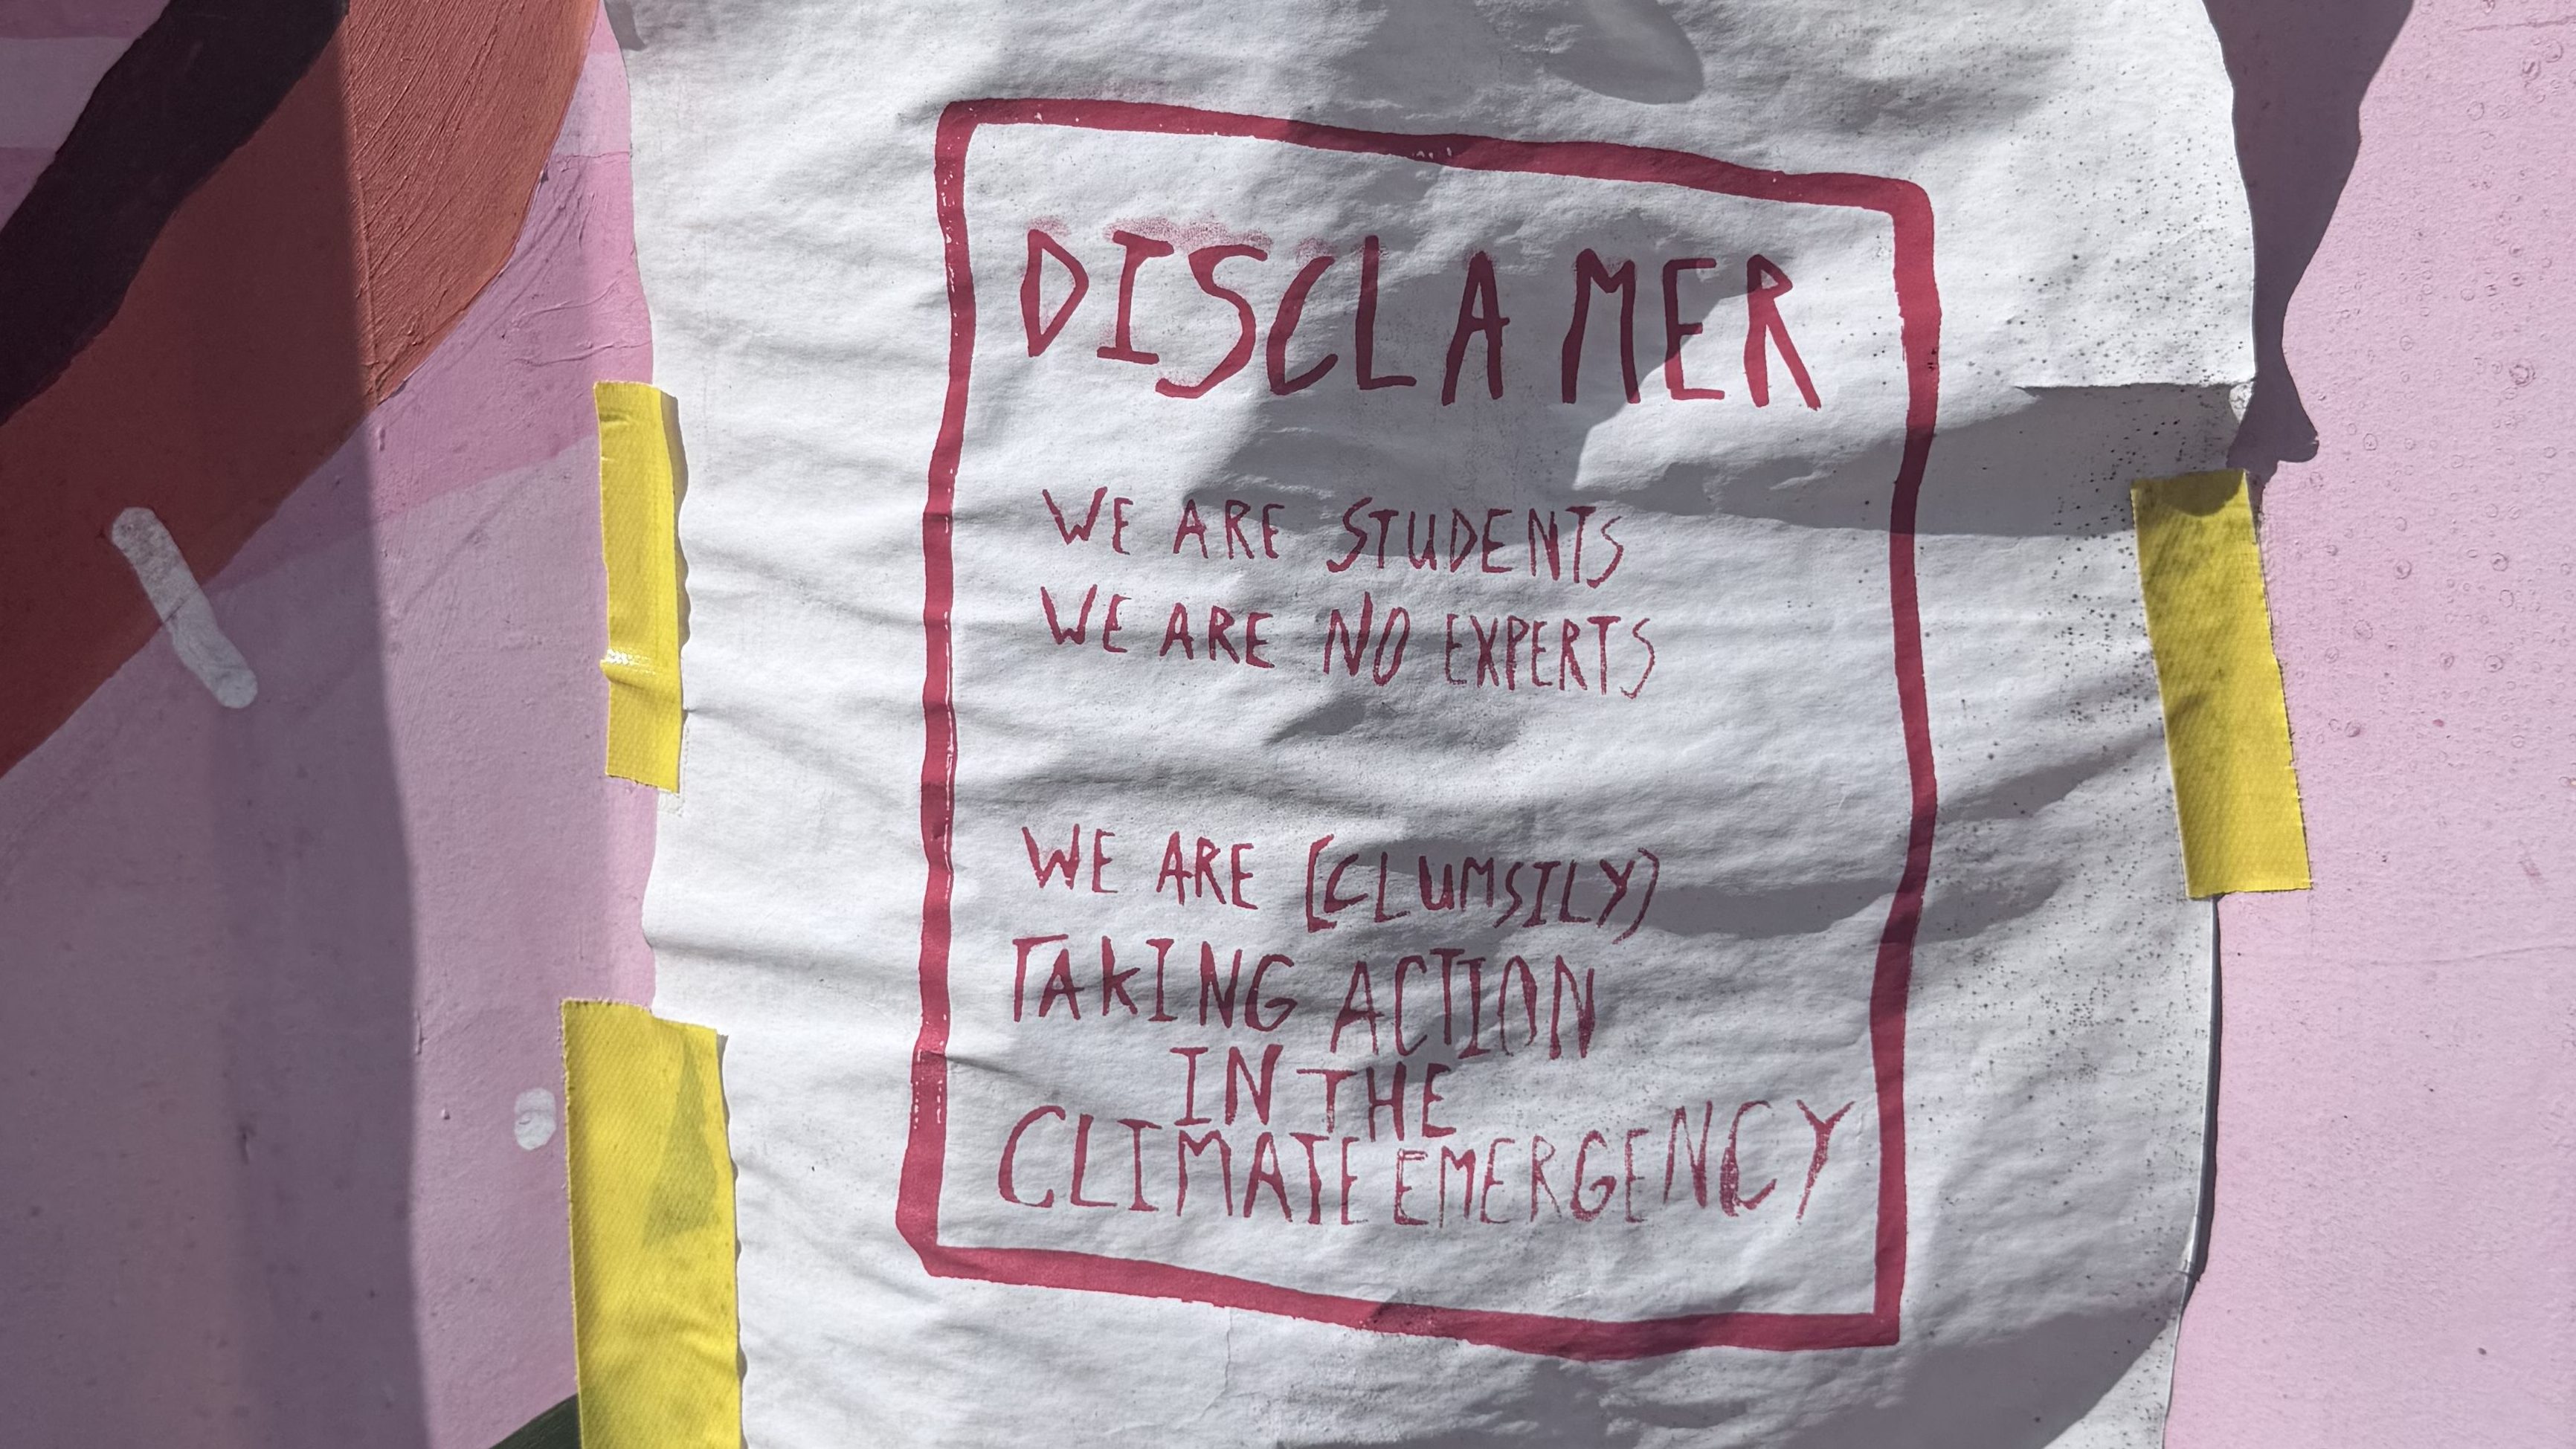 DISCLAMER
WE ARE STUDENTS
WE ARE NO EXPERTS
WE ARE (CLUMSILY)
TAKING ACTION
IN THE
CLIMATE EMERGENCY